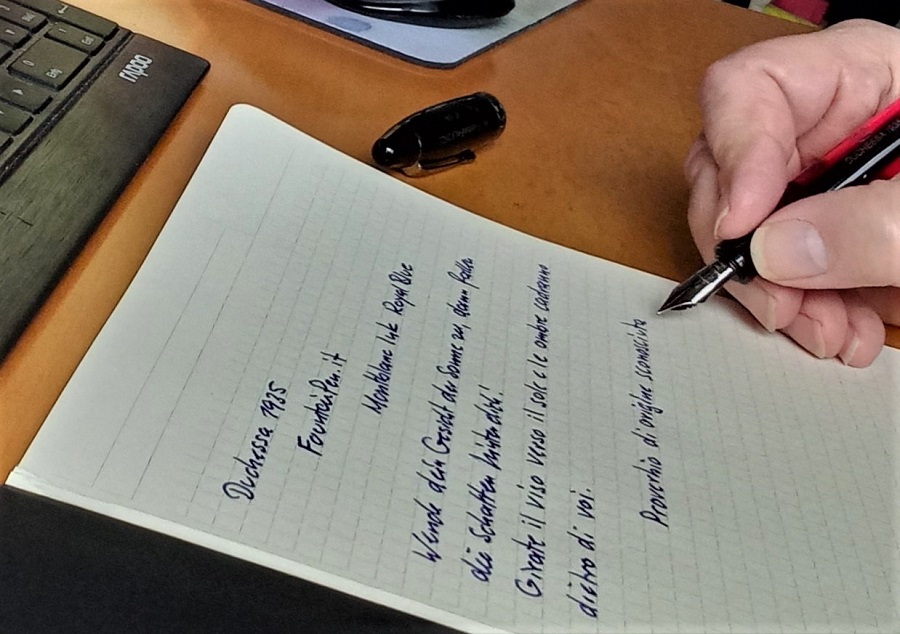 rapoo
Duchessa 1935
FountainPen.it
Montblanc Ink Royal Blue
Wende dein Gesicht der Sonne zu, dann fallen
die Schatten hinter dich!
Girate il viso verso il sole e le ombre cadranno
dietro di voi.
Proverbio di origine sconosciuta